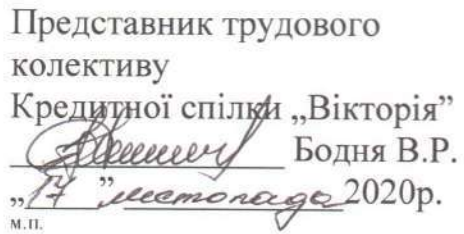 Представник трудового
колективу
Кредитної спілки „Вікторія”
Бодня В.Р.
„17” листопада 2020р.
м.п.